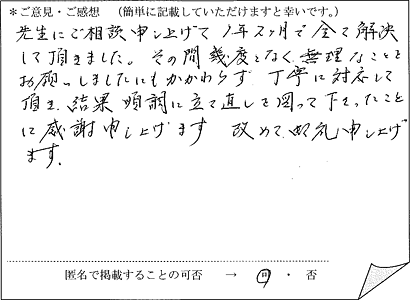 *ご意見・ご感想 (簡単に記載していただけますと幸いです。)
先生にご相談申し上げて1年2ヶ月で全て解決
して頂きました。その間幾度となく無理なことを
お願いしましたにもかかわらず丁寧に対応して
頂き結果順調に立て直しを図って下さったこと
に感謝申し上げます 改めて御礼申し上げ
ます。
匿名で掲載することの可否 → 可 ・ 否